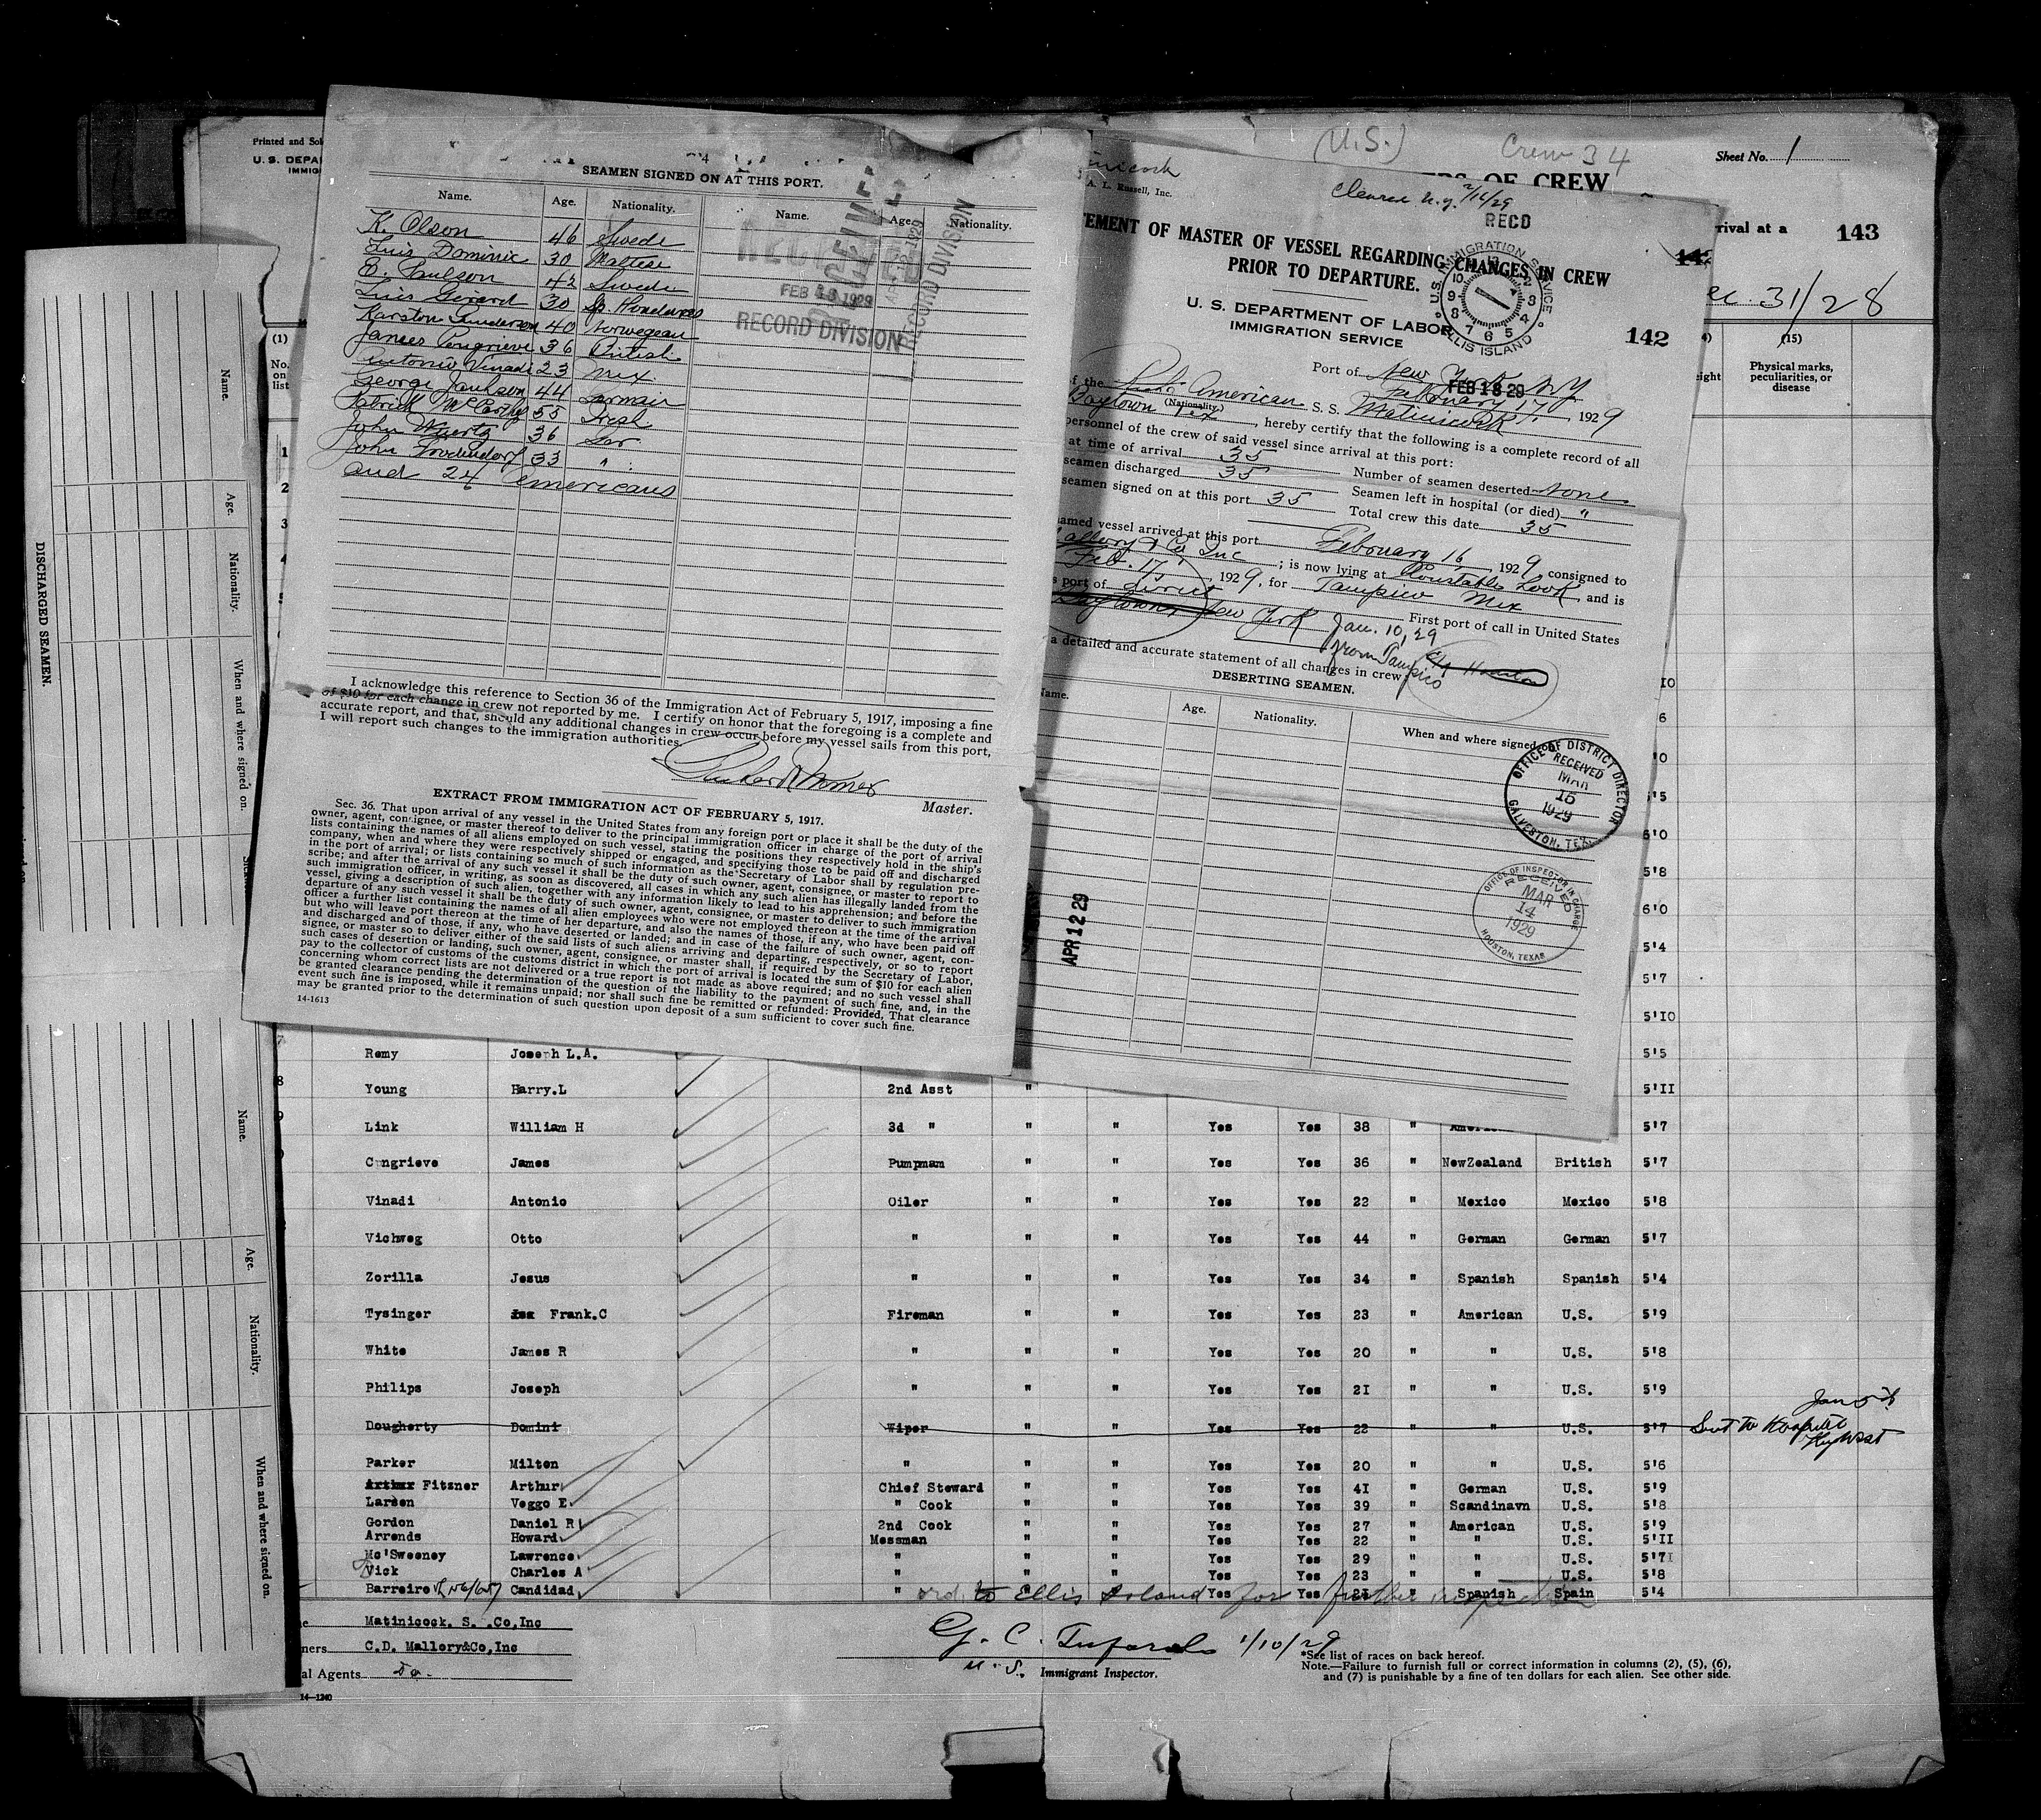 Printed and Sol
U. S. DEPA
IMMIG
(U.S.)
Crew 34
Sheet No. 1
OF CREW
rival at a 143
31/28
(1)
No. on list
(15)
Physical marks, peculiarities, or disease
eight
4
SEAMEN SIGNED ON AT THIS PORT.
Name. Age. Nationality. Name. Age. Nationality.
K. Olson 46 Swede
Luis Dominic 30 Maltese
Paulson 42 Swede
Luis Gerard 30 Sp. Honduras
Karston 40 Norwegean
James Congrieve 36 British
Antonio Vinadi 23 Mex.
George 44 German
Patrick McCarthy 55 Irish
John 36 Ger
John 33 "
and 24 Americans
RECEIVED
FEB 18 1929
RECORD DIVISION
RECEIVED
RECORD DIVISION
I acknowledge this reference to Section 36 of the Immigration Act of February 5, 1917, imposing a fine
of $10 for each change in crew not reported by me. I certify on honor that the foregoing is a complete and
accurate report, and that, should any additional changes in crew occur before my vessel sails from this port,
I will report such changes to the immigration authorities.
Master.
EXTRACT FROM IMMIGRATION ACT OF FEBRUARY 5, 1917.
Sec. 36. That upon arrival of any vessel in the United States from any foreign port or place it shall be the duty of the
owner, agent, consignee, or master thereof to deliver to the principal immigration officer in charge of the port of arrival
lists containing the names of all aliens employed on such vessel, stating the positions they respectively hold in the ship's
company, when and where they were respectively shipped or engaged, and specifying those to be paid off and discharged
in the port of arrival; or lists containing so much of such information as the Secretary of Labor shall by regulation pre-
scribe; and after the arrival of any such vessel it shall be the duty of such owner, agent, consignee, or master to report to
such immigration officer, in writing, as soon as discovered, all cases in which any such alien has illegally landed from the
vessel, giving a description of such alien, together with any information likely to lead to his apprehension; and before the
departure of any such vessel it shall be the duty of such owner, agent, consignee, or master to deliver to such immigration
officer a further list containing the names of all alien employees who were not employed thereon at the time of the arrival
but who will leave port thereon at the time of her departure, and also the names of those, if any, who have been paid off
and discharged and of those, if any, who have deserted or landed; and in case of the failure of such owner, agent, con-
signee, or master so to deliver either of the said lists of such aliens arriving and departing, respectively, or so to report
such cases of desertion or landing, such owner, agent, consignee, or master shall, if required by the Secretary of Labor,
pay to the collector of customs of the customs district in which the port of arrival is located the sum of $10 for each alien
concerning whom correct lists are not delivered or a true report is not made as above required; and no such vessel shall
be granted clearance pending the determination of the question of the liability to the payment of such fine, and, in the
event such fine is imposed, while it remains unpaid; nor shall such fine be remitted or refunded: Provided, That clearance
may be granted prior to the determination of such question upon deposit of a sum sufficient to cover such fine.
14-1613
A. L. Russell, Inc.
Cleared N.Y. 2/16/29
RECD
EMENT OF MASTER OF VESSEL REGARDING CHANGES IN CREW
PRIOR TO DEPARTURE.
U. S. IMMIGRATION SERVICE
ELLIS ISLAND
U. S. DEPARTMENT OF LABOR
IMMIGRATION SERVICE
142
Port of New York NY
FEB 18 29
February 17, 1929
of the American S. S. Matinicock
(Nationality.)
Baytown Tex, hereby certify that the following is a complete record of all
personnel of the crew of said vessel since arrival at this port:
at time of arrival 35 Number of seamen deserted None
seamen discharged 35 Seamen left in hospital (or died) "
seamen signed on at this port 35 Total crew this date 35
named vessel arrived at this port February 16, 1929, consigned to
Mallory & Co Inc; is now lying at Constable Hook, and is
Feb. 17, 1929, for Tampico Mex
s port of First port of call in United States
Baytown New York Jan. 10, 29
from Tampico
a detailed and accurate statement of all changes in crew
DESERTING SEAMEN.
Name. Age. Nationality. When and where signed
OFFICE OF DISTRICT DIRECTOR
RECEIVED
MAR 16 1929
GALVESTON, TEX.
OFFICE OF INSPECTOR IN CHARGE
RECEIVED
MAR 14 1929
HOUSTON, TEXAS
APR 12 29
DISCHARGED SEAMEN.
Name. Age. Nationality. When and where signed on.
Name. Age. Nationality. When and where signed on.
1
2
3
IO
6
'0
'5
6'0
5'8
6'0
5'4
5'7
5'IO
Remy Joseph L.A. 5'5
8 Young Harry.L 2nd Asst " 5'II
9 Link William H 3d " " " Yes Yes 38 " 5'7
Congrieve James Pumpman " " Yes Yes 36 " NewZealand British 5'7
Vinadi Antonio Oiler " " Yes Yes 22 " Mexico Mexico 5'8
Vichweg Otto " " " Yes Yes 44 " German German 5'7
Zorilla Jesus " " " Yes Yes 34 " Spanish Spanish 5'4
Tysinger Frank.C Fireman " " Yes Yes 23 " American U.S. 5'9
White James R " " " Yes Yes 20 " " U.S. 5'8
Philips Joseph " " " Yes Yes 2I " " U.S. 5'9
Dougherty Domini Wiper " " Yes Yes 22 " " U.S. 5'7 Jan 5th Sent to Hospital Key West
Parker Milton " " " Yes Yes 20 " " U.S. 5'6
Arthur Fitzner Arthur Chief Steward " " Yes Yes 4I " German U.S. 5'9
Larsen Veggo E. " Cook " " Yes Yes 39 " Scandinavn U.S. 5'8
Gordon Daniel R 2nd Cook " " Yes Yes 27 " American U.S. 5'9
Arrends Howard Messman " " Yes Yes 22 " " U.S. 5'II
Mc'Sweeney Lawrence " " " Yes Yes 29 " " U.S. 5'7
Vick Charles A " " " Yes Yes 23 " " U.S. 5'8
Barreiro Candidad " Yes Yes " Spanish Spain 5'4
ord. to Ellis Island for further inspection
Matinicock. S. .Co,Inc
ners C.D. Mallory&Co,Inc
al Agents Do.
14—1240
1/10/29
U. S. Immigrant Inspector.
*See list of races on back hereof.
Note.—Failure to furnish full or correct information in columns (2), (5), (6),
and (7) is punishable by a fine of ten dollars for each alien. See other side.